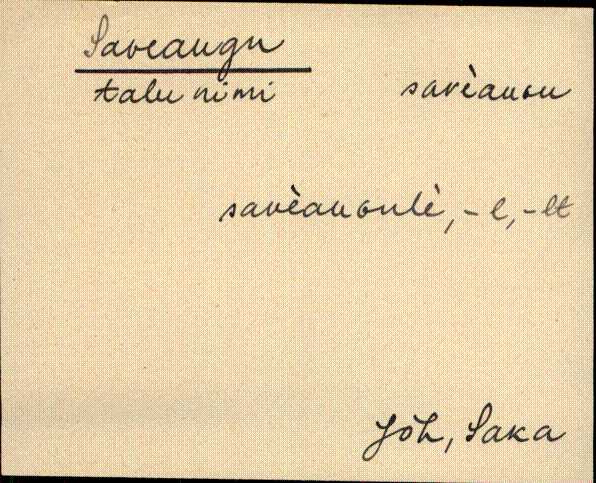 Saveaugu
talu nimi savèauɢu
savèauɢulè, -l, -lt
Jõh, Saka